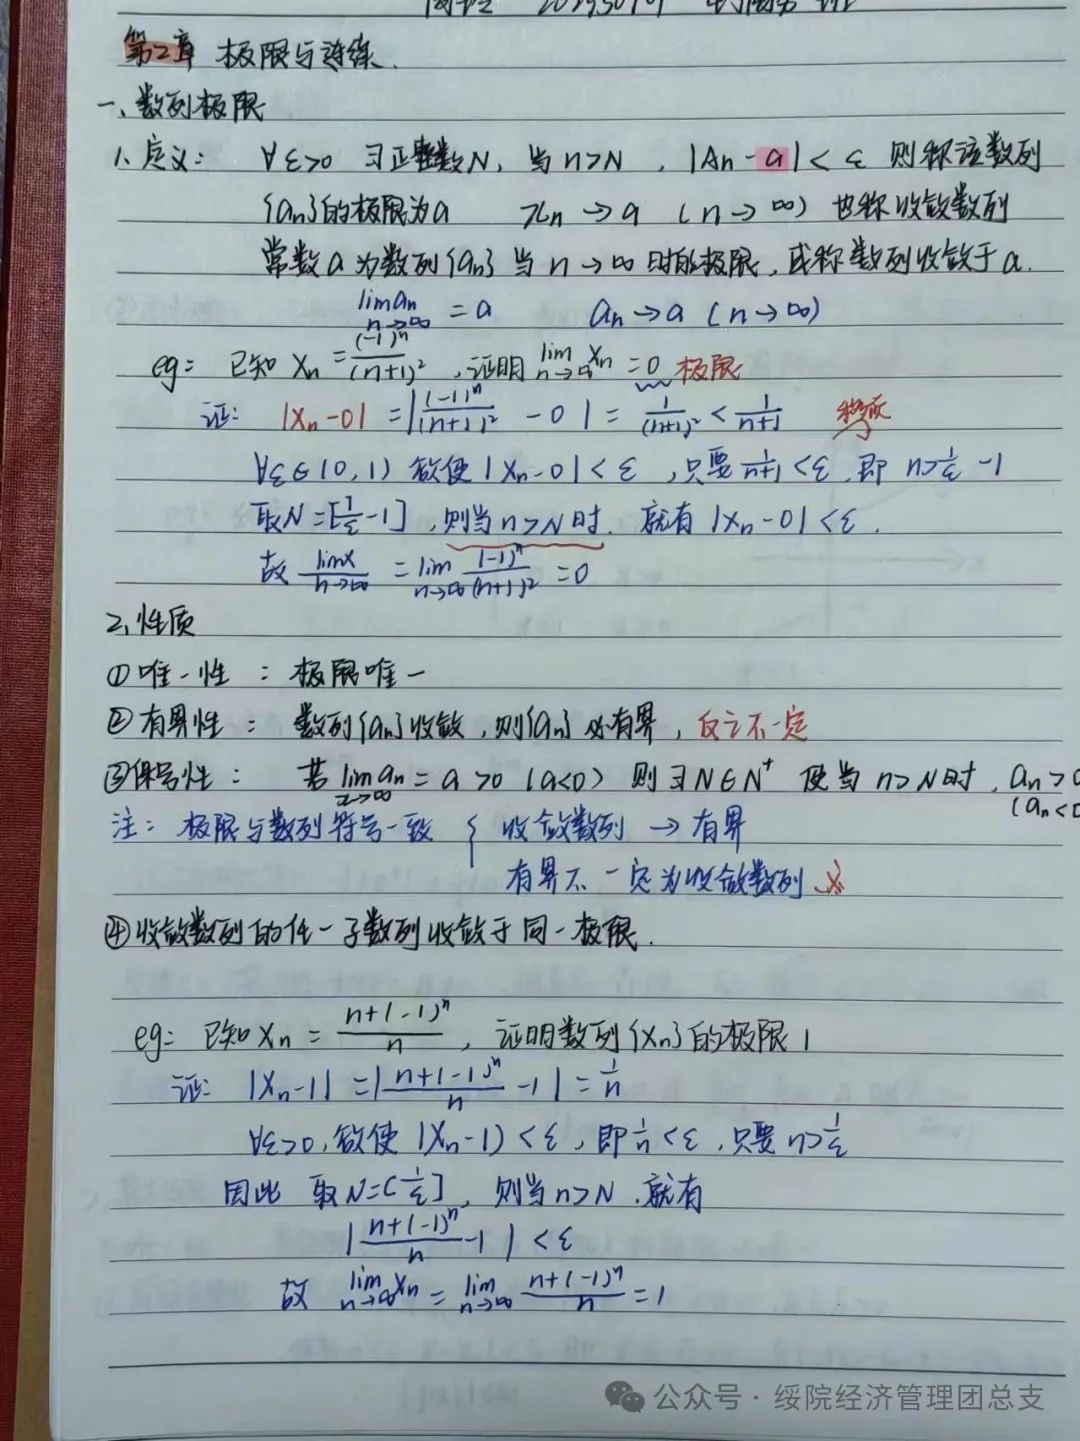 第2章 极限与连续.
一、数列极限
1、定义: ∀ε>0 ∃正整数N, 当n>N, |An-a|<ε 则称该数列
{an}的极限为a xn→a (n→∞) 也称收敛数列
常数a为数列{an}当n→∞时的极限, 或称数列收敛于a.
lim an n→∞ = a an→a (n→∞)
eg: 已知 Xn = (-1)^n/(n+1)^2, 证明 lim n→∞ Xn =0 极限
证: |Xn-0| = |(-1)^n/(n+1)^2 - 0| = 1/(n+1)^2 < 1/n+1
∀ε∈(0,1) 欲使|Xn-0|<ε, 只要1/n+1<ε, 即 n>1/ε-1
取N=[1/ε-1], 则当n>N时, 就有|Xn-0|<ε.
故 limx/n→∞ = lim n→∞ (-1)^n/(n+1)^2 =0
2、性质
①唯一性: 极限唯一
②有界性: 数列{an}收敛, 则{an}必有界, 反之不一定
③保号性: 若 lim x→∞ an = a>0 (a<0) 则∃N∈N⁺ 使当n>N时, an>0
(an<0
注: 极限与数列符号一致 { 收敛数列→有界
有界不一定为收敛数列
④收敛数列的任一子数列收敛于同一极限.
eg: 已知Xn = n+(-1)^n/n, 证明数列{Xn}的极限1
证: |Xn-1| = |n+(-1)^n/n -1| = 1/n
∀ε>0, 欲使|Xn-1)<ε, 即1/n<ε, 只要n>1/ε
因此 取N=[1/ε], 则当n>N, 就有
|n+(-1)^n/n -1|<ε
故 lim n→∞ Xn = lim n→∞ n+(-1)^n/n =1
公众号·绥院经济管理团总支